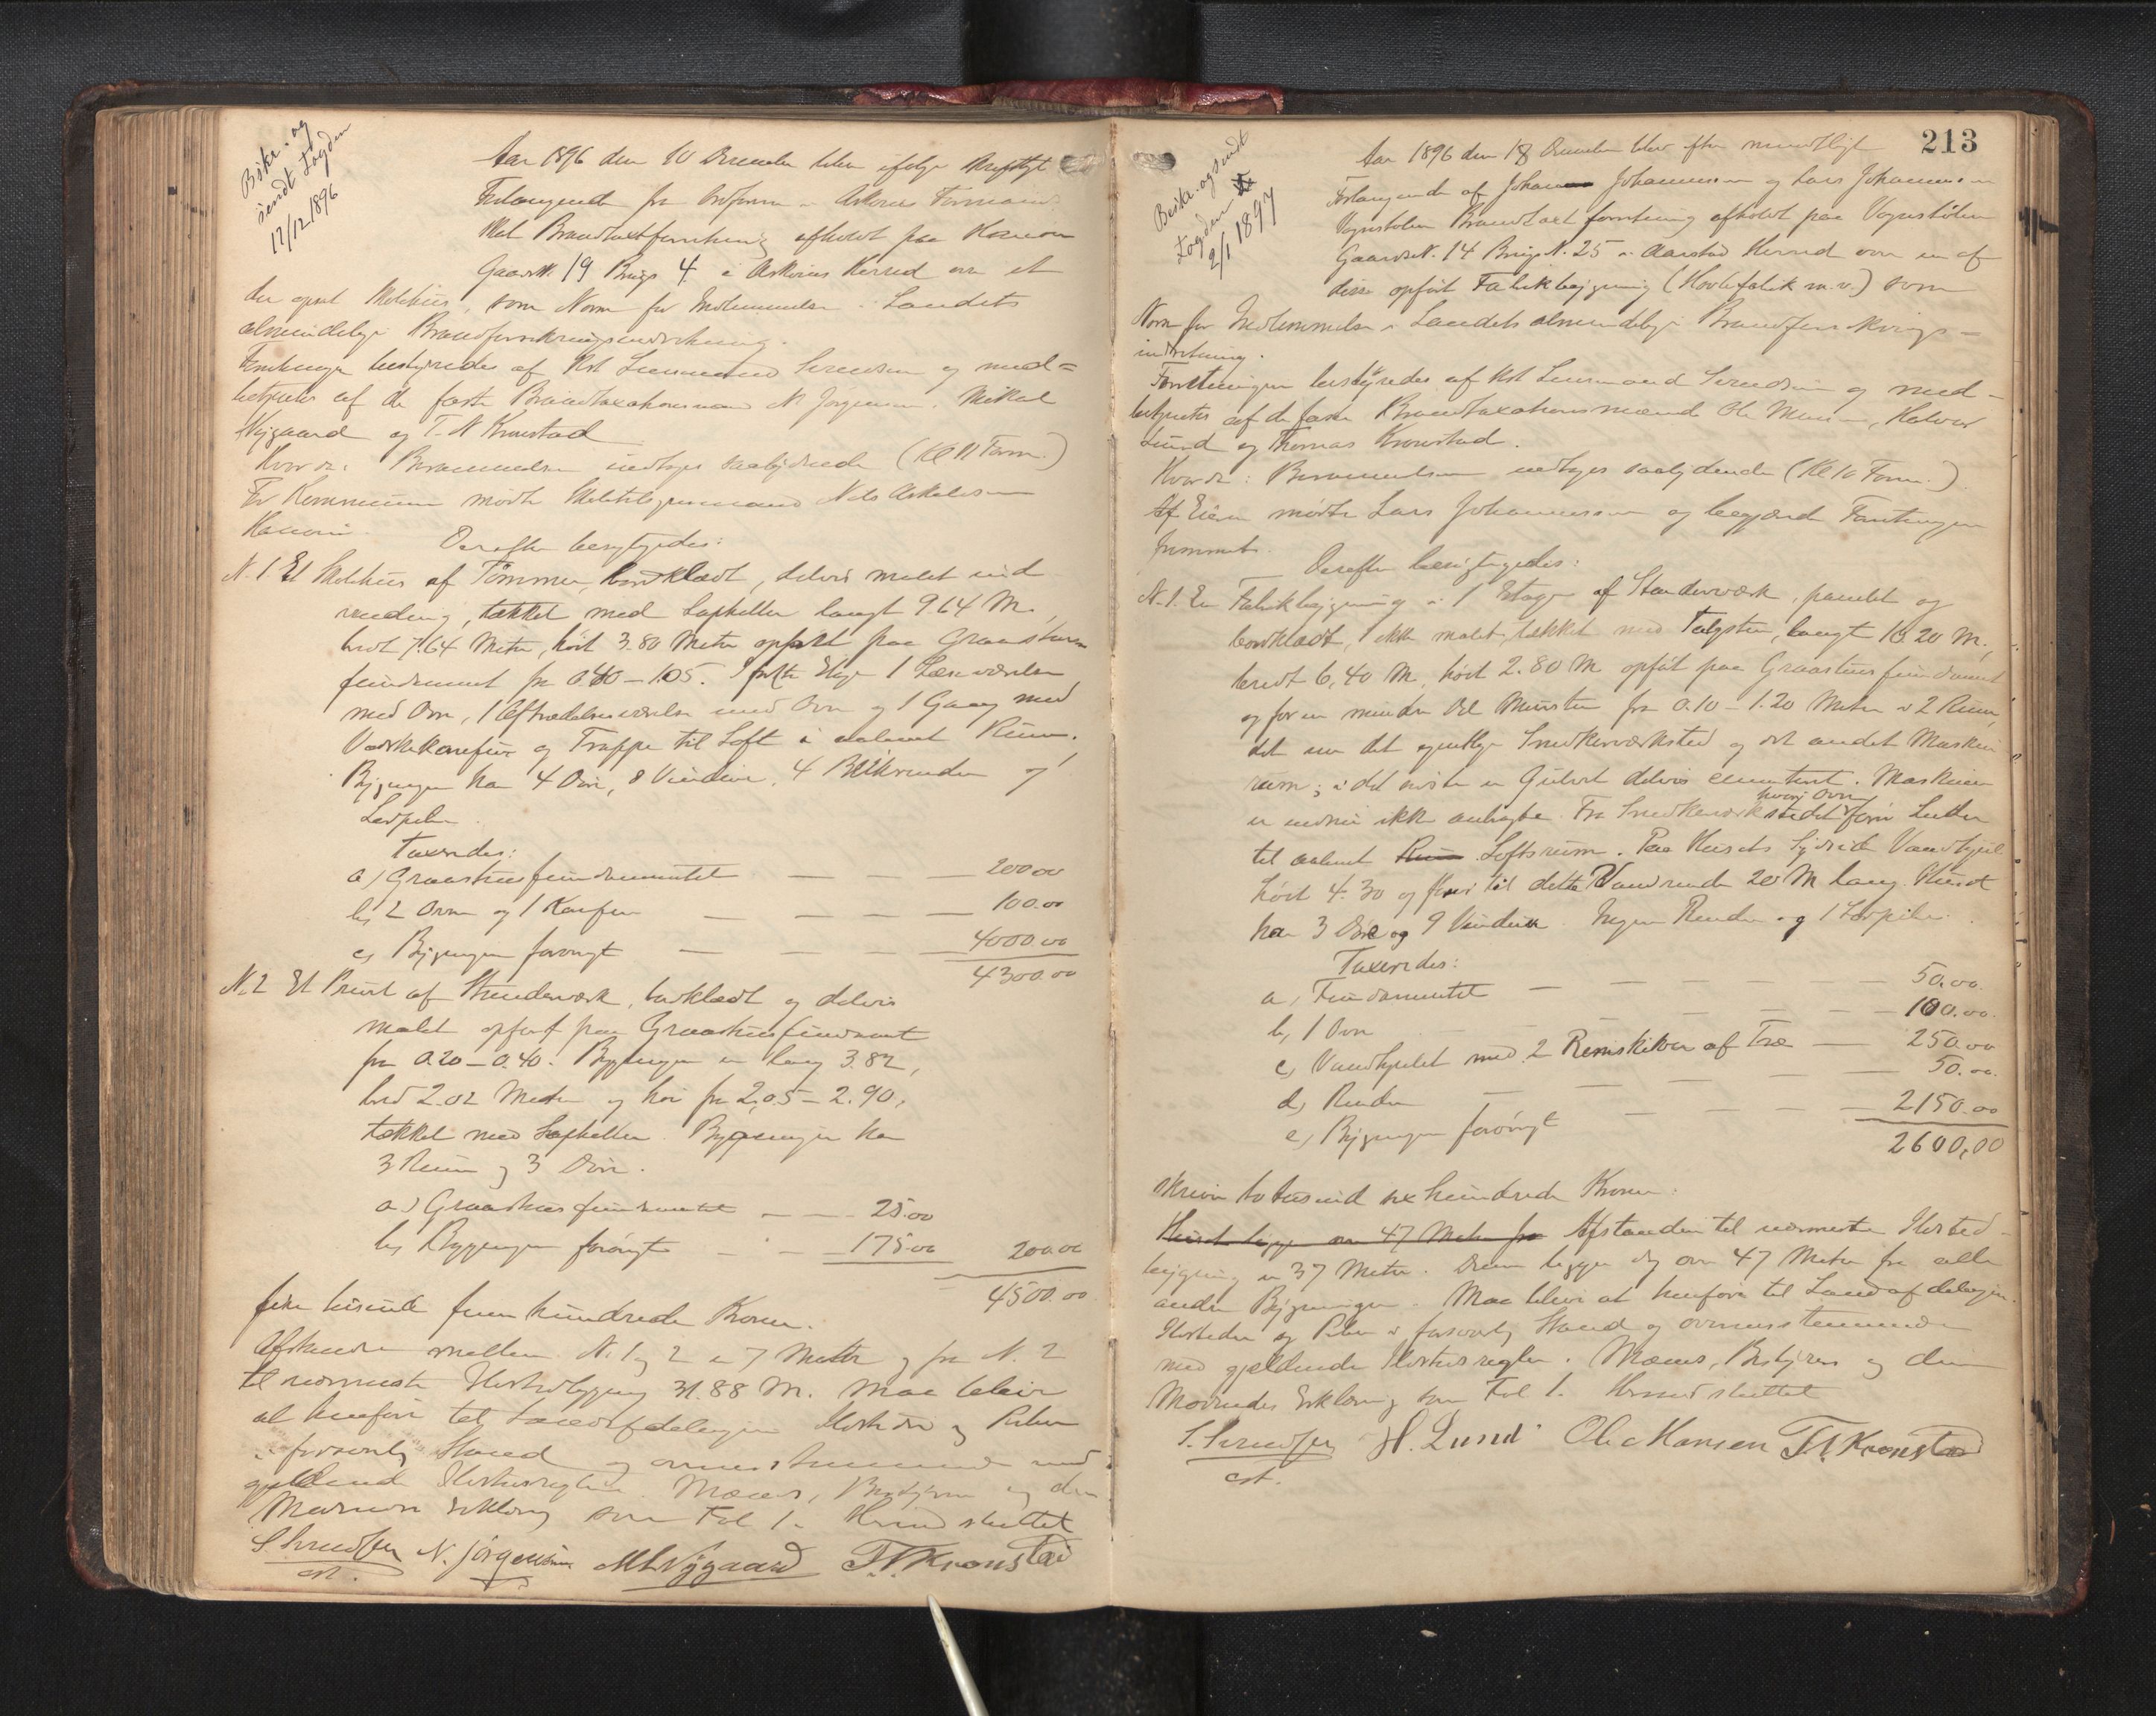 Beskr. og
sendt Fogden
17/12 1896
Aar 1896 den 10 December blev ifølge skriftligt
Forlangende fra Ordføreren i Askøens Formand-
skab Brandtaxtforretning afholdt paa
Gaards N. 19 Brugs 4 i Askøens Herred over et
der opsat Skolehus, som Norm for Indlemmelse i Landets
almindelige Brandforsikringsindretning.
Forretningen bestyredes af Kst Lensmand Svendsen og med-
betjentes af de faste Brandtaxationsmænd N Jørgensen, Mikal
Nygaard og T. N Kronstad
Hvorda: Berammelsen indtages saalydende (Kl 11 Form.)
For Kommunen mødte Nils Askelsen
Derefter besigtigedes:
N. 1 Et Skolehus af Tømmer, bordklædt, delvis malet ind
vendig, tækket med Lapheller langt 9.64 M.,
bredt 7.64 Meter, høit 3.80 Meter opført paa Graastens
fundament fra 0.40 – 1.05. I første Etage 1 Læseværelse
med Ovn, 1 Aftrædelsesværelse med Ovn og 1 Gang med
Vaskekomfur og Trappe til Loft i aabent Rum.
Bygningen har 4 Døre, 8 Vinduer, 4 Blikrender 1
Taxeredes:
a) Graastensfundamentet — — — 200.00
b) 2 Ovne og 1 Komfur — — — 100.00
c) Bygningen forøvrigt — — — 4000.00
4300.00
N. 2 Et Privet af Stenderværk, bordklædt og delvis
malet opført paa Graastensfundament
fra 0.20 – 0.40. Bygningen er lang 3.82,
bred 2.02 Meter og høi fra 2.05 – 2.90,
tækket med Lapheller. Bygningen har
3 Rum og 3 Døre.
a) Graastensfundamentet — — 25.00
b) Bygningen forøvrigt — — 175.00 200.00
4500.00
fire tusinde fem hundrede Kroner.
Afstanden mellem N. 1 og 2 er 7 Meter og fra N. 2
til nærmeste Ildstedbygning 31.88 M. Maa blive
at henføre til Landafdelingen. Ildsteder og Piber
i forsvarlig Stand og overensstemmende med
gjældende Ildstedsregler. Mænds, Bestyrers og den
Mødendes Erklæring som Fol 1. Hermed sluttet
S Svendsen N. Jørgensen M L Nygaard T. N. Kronstad
cst.
213
Beskr. og sendt
Fogden
2/1 1897
Aar 1896 den 18 December blev efter mundtligt
Forlangende af Johan Johannesen og Lars Johannesen
Vognstølen Brandtaxtforretning afholdt paa Vognstølen
Gaards N. 14 Brugs N. 25 i Aarstad Herred over en af
disse opført Fabrikbygning (Høvlefabrik m.v.) som
Norm for Indlemmelse i Landets almindelige Brandforsikrings-
indretning.
Forretningen bestyredes af Kst Lensmand Svendsen og med-
betjentes af de faste Brandtaxationsmænd Ole Hansen, Halvor
Lund og Thomas Kronstad.
Hvorda: Berammelsen indtages saalydende (Kl 10 Form.)
Af Eierne mødte Lars Johannesen og begjærede Forretningen
fremmet.
Derefter besigtigedes:
N. 1. En Fabrikbygning i 1 Etage af Stenderværk, panelet og
bordklædt, ikke malet, tækket med Taksten, langt 18.20 M.,
bredt 6,40 M, høit 2.80 M opført paa Graastensfundament
og for en mindre Del Mursten fra 0.10 – 1.20 Meter i 2 Rum,
det ene det egentlige Snedkerværksted og det andet Maskin
rum; i det sidste er Gulvet delvis cementeret. Maskiner
er endnu ikke anbragte. Fra Snedkerværkstedet hvori Ovn fører Luker
til aabent Loftsrum. Paa Husets Sydside Vandhjul
høit 4.30 og fører til dette Vandrende 20 M lang. Huset
har 3 Døre og 9 Vinduer. Ingen Render og 1 Ildpibe.
Taxeredes:
a) Fundamentet — — — 50.00
b) 1 Ovn — — — 100.00
c) Vandhjulet med 2 Remskiver af Træ — 250.00
d) Renden — — — 50.00
e) Bygningen forøvrigt — — — 2150.00
2600,00
skriver to tusind sex hundrede Kroner.
Huset ligger over 47 Meter fra Afstanden til nærmeste Ildsted-
bygning er 37 Meter. Den ligger dog over 47 Meter fra alle
andre Bygninger. Maa blive at henføre til Landafdelingen.
Ildsteder og Piber i forsvarlig Stand og overensstemmende
med gjældende Ildstedsregler. Mænds, Bestyrers og den
Mødendes Erklæring som Fol 1. Hermed sluttet
S. Svendsen H. Lund Ole Hansen T. N. Kronstad
cst.